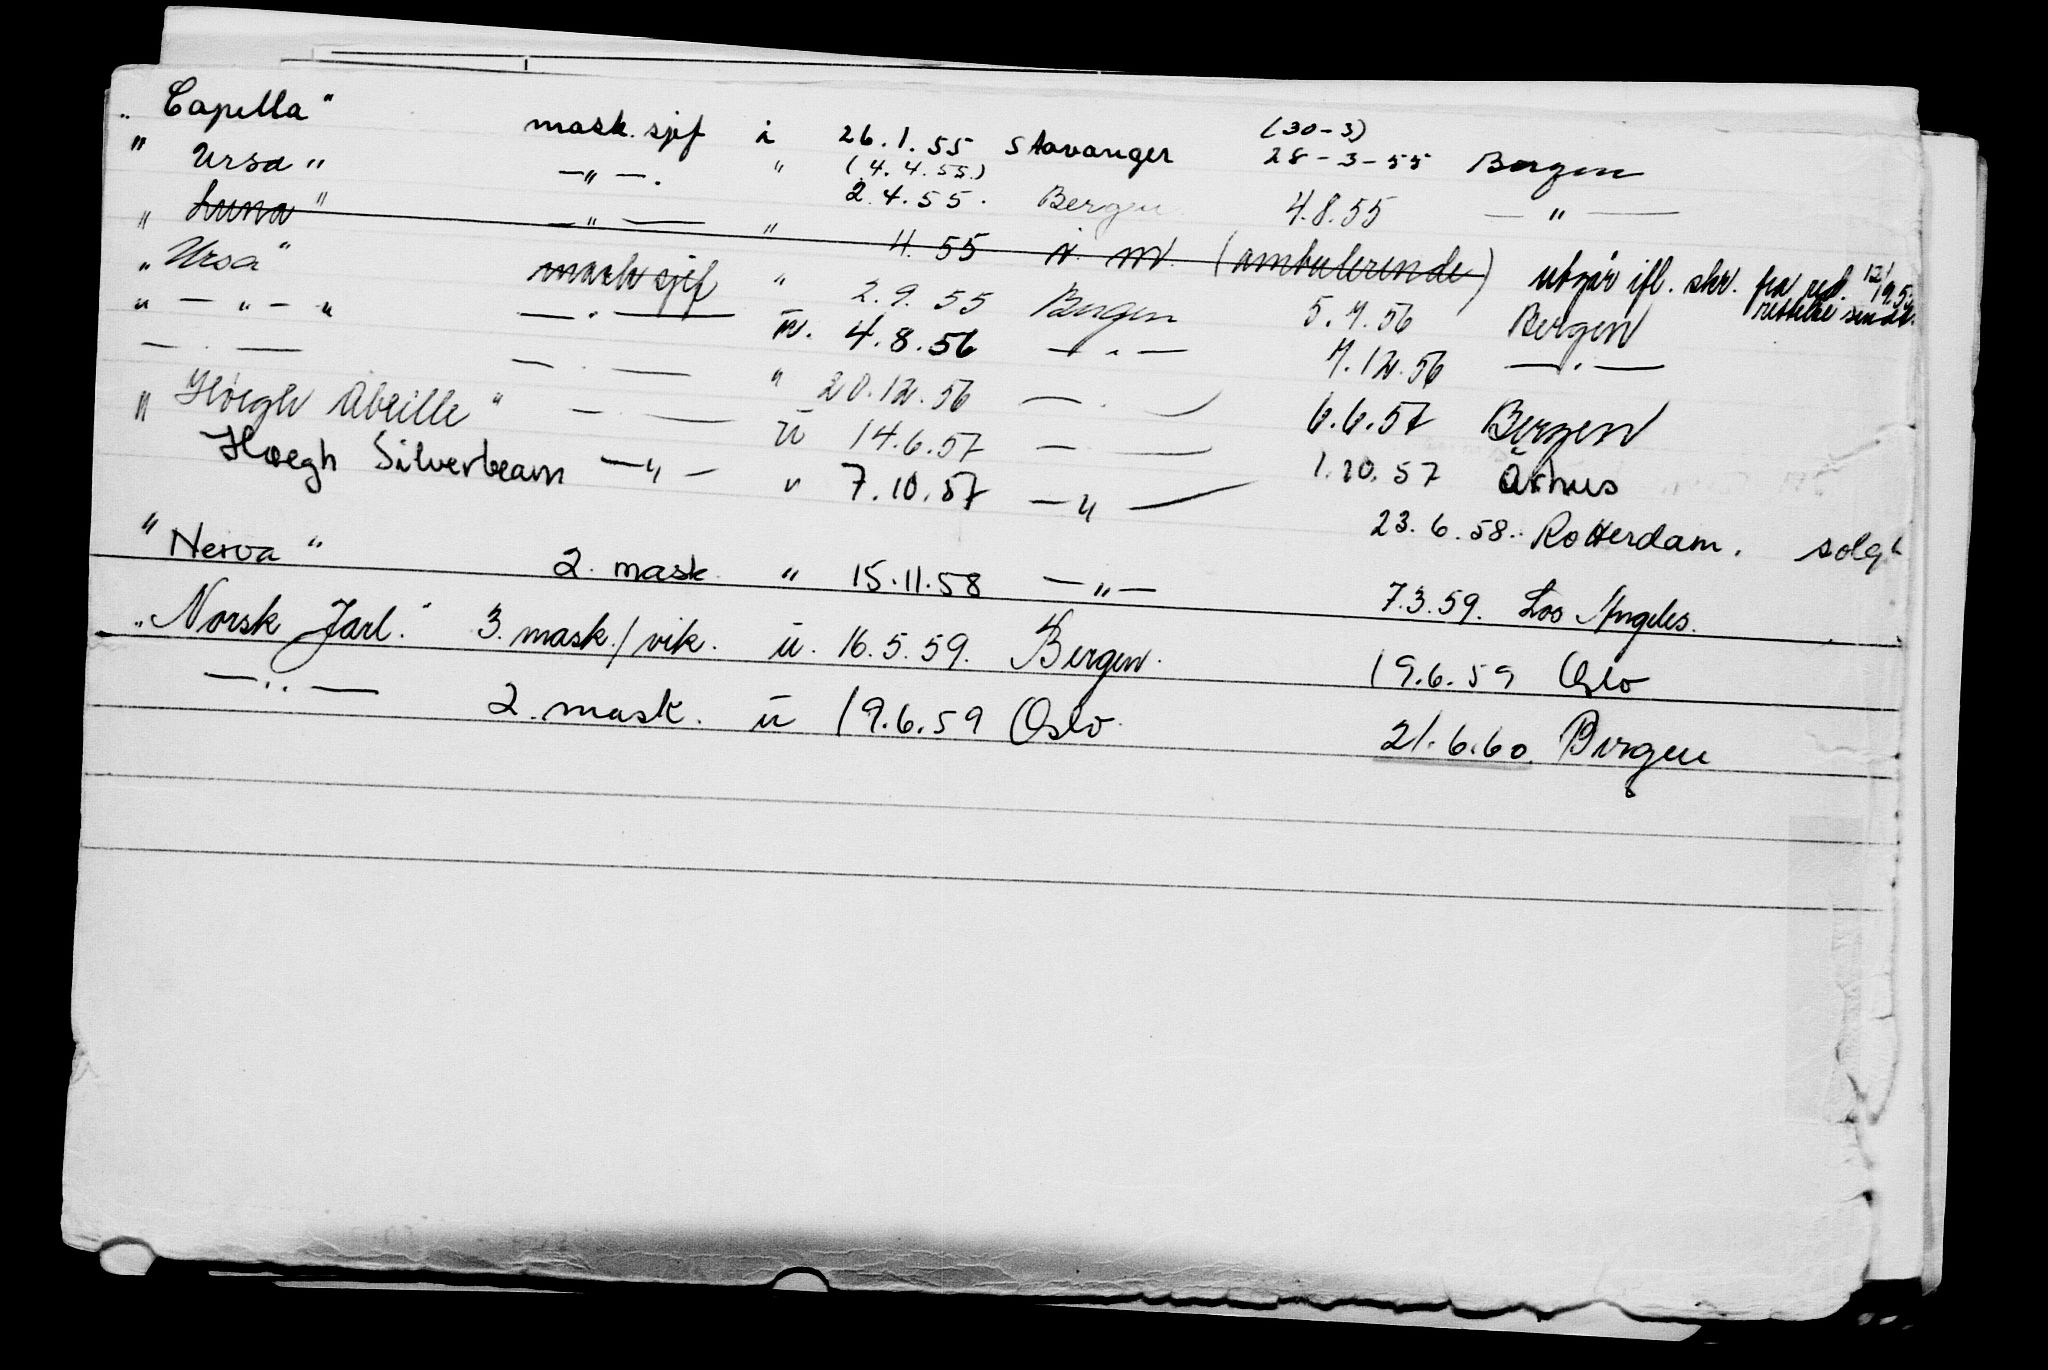 "Capella" mask. sjef i 26.1.55 Stavanger (30-3) 28-3-55 Bergen
" Ursa " —"—. " (4.4.55.) 2.4.55. Bergen 4.8.55 —"—
" Luna " —"— " 4.55 (ambulerende) utgår ifl. skr. fra red.
"Ursa" mask sjef " 2.9.55 Bergen 5.7.56 Bergen
" — " — " —"— 4.8.56 —"— 7.12.56 —"—
—"— —"— " 20.12.56 —"— 6.6.57 Bergen
" Høegh Abeille " —"— u 14.6.57 —"— 1.10.57 Århus
Høegh Silverbeam —"— " 7.10.57 —"— 23.6.58. Rotterdam. solgt
"Nerva" 2. mask. " 15.11.58 —"— 7.3.59. Los Angeles.
"Norsk Jarl." 3. mask./vik. u. 16.5.59. Bergen. 19.6.59 Oslo
—"— 2. mask. u 19.6.59 Oslo. 21.6.60. Bergen